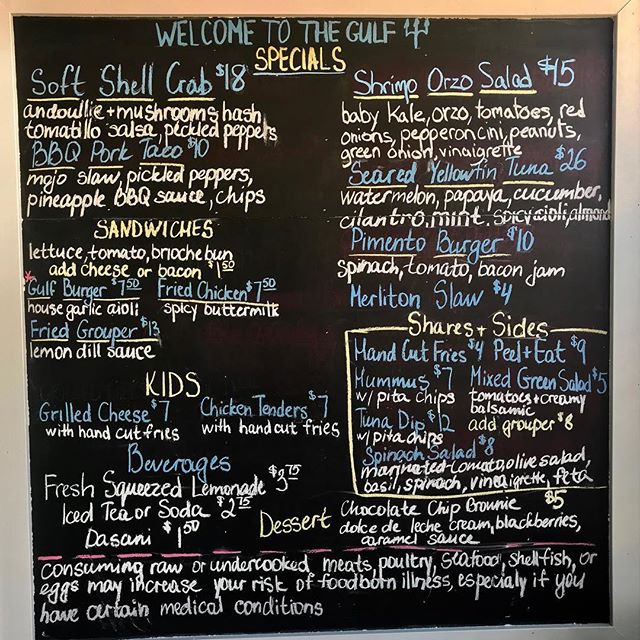 WELCOME TO THE GULF
SPECIALS
Soft Shell Crab $18
andoullie + mushrooms hash
tomatillo salsa, pickled peppers
BBQ Pork Taco $10
mojo slaw, pickled peppers,
pineapple BBQ sauce, chips
Shrimp Orzo Salad $15
baby kale, orzo, tomatoes, red
onions, pepperoncini, peanuts,
green onion, vinaigrette
Seared Yellowfin Tuna $26
watermelon, papaya, cucumber,
cilantro, mint, spicy aioli, almond
Pimento Burger $10
spinach, tomato, bacon jam
Merliton Slaw $4
SANDWICHES
lettuce, tomato, brioche bun
add cheese or bacon $1.50
*Gulf Burger $7.50
house garlic aioli
Fried Chicken $7.50
spicy buttermilk
Fried Grouper $13
lemon dill sauce
KIDS
Grilled Cheese $7
with hand cut fries
Chicken Tenders $7
with hand cut fries
Shares + Sides
Hand Cut Fries $4
Peel + Eat $9
Hummus $7
w/ pita chips
Mixed Green Salad $5
tomatoes + creamy
balsamic
add grouper $8
Tuna Dip $12
w/ pita chips
Spinach Salad $8
marinated tomato, olive salad,
basil, spinach, vinaigrette, feta
Beverages
Fresh Squeezed Lemonade $3.75
Iced Tea or Soda $2.75
Dasani $1.50
Dessert
Chocolate Chip Brownie $5
dolce de leche cream, blackberries,
caramel sauce
consuming raw or undercooked meats, poultry, seafood, shellfish, or
eggs may increase your risk of foodborn illness, especialy if you
have certain medical conditions